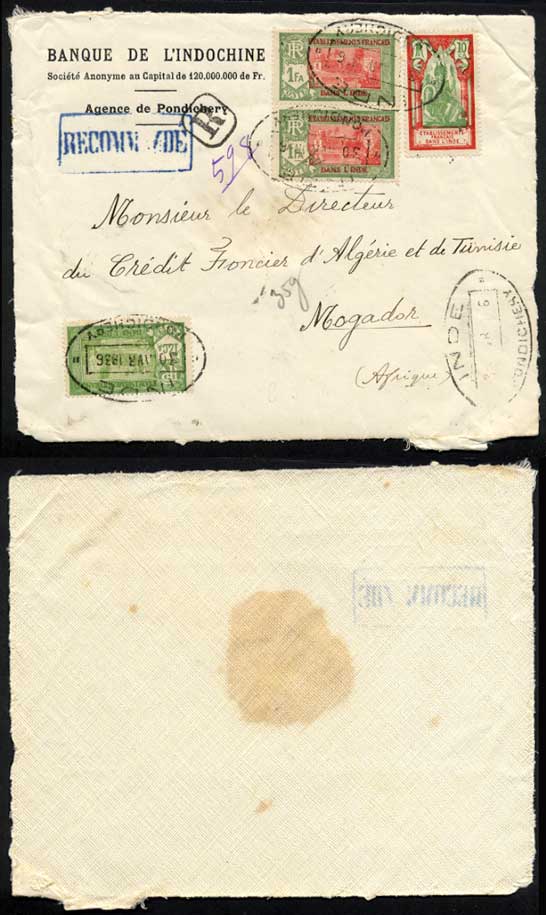 BANQUE DE L'INDOCHINE
Société Anonyme au Capital de 120.000.000 de Fr.
Agence de Pondichery
R
RECOMM
598
ETABLISSEMENTS FRANÇAIS
1FA
DANS L'INDE
ETABLISSEMENTS FRANÇAIS
1FA
DANS L'INDE
ETABLISSEMENTS
FRANÇAIS
DANS L'INDE
Monsieur le Directeur
du Crédit Foncier d'Algérie et de Tunisie
35g
Mogador
(Afrique)
PONDICHERY
30 AVR 1936
INDE
PONDICHERY
INDE